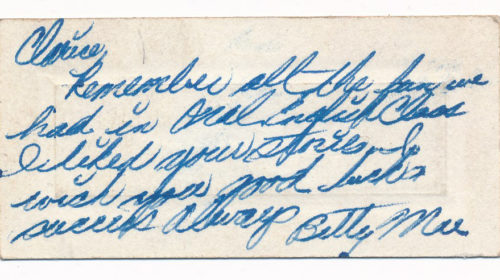 Clarice,
Remember all the fun we
had in Oral English Class
I liked your stories. I
wish you good luck &
success always
Betty Mae